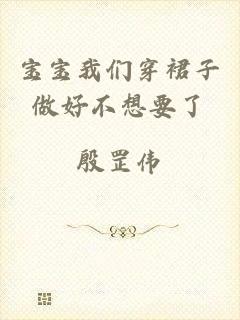 宝宝我们穿裙子
做好不想要了
殷罡伟